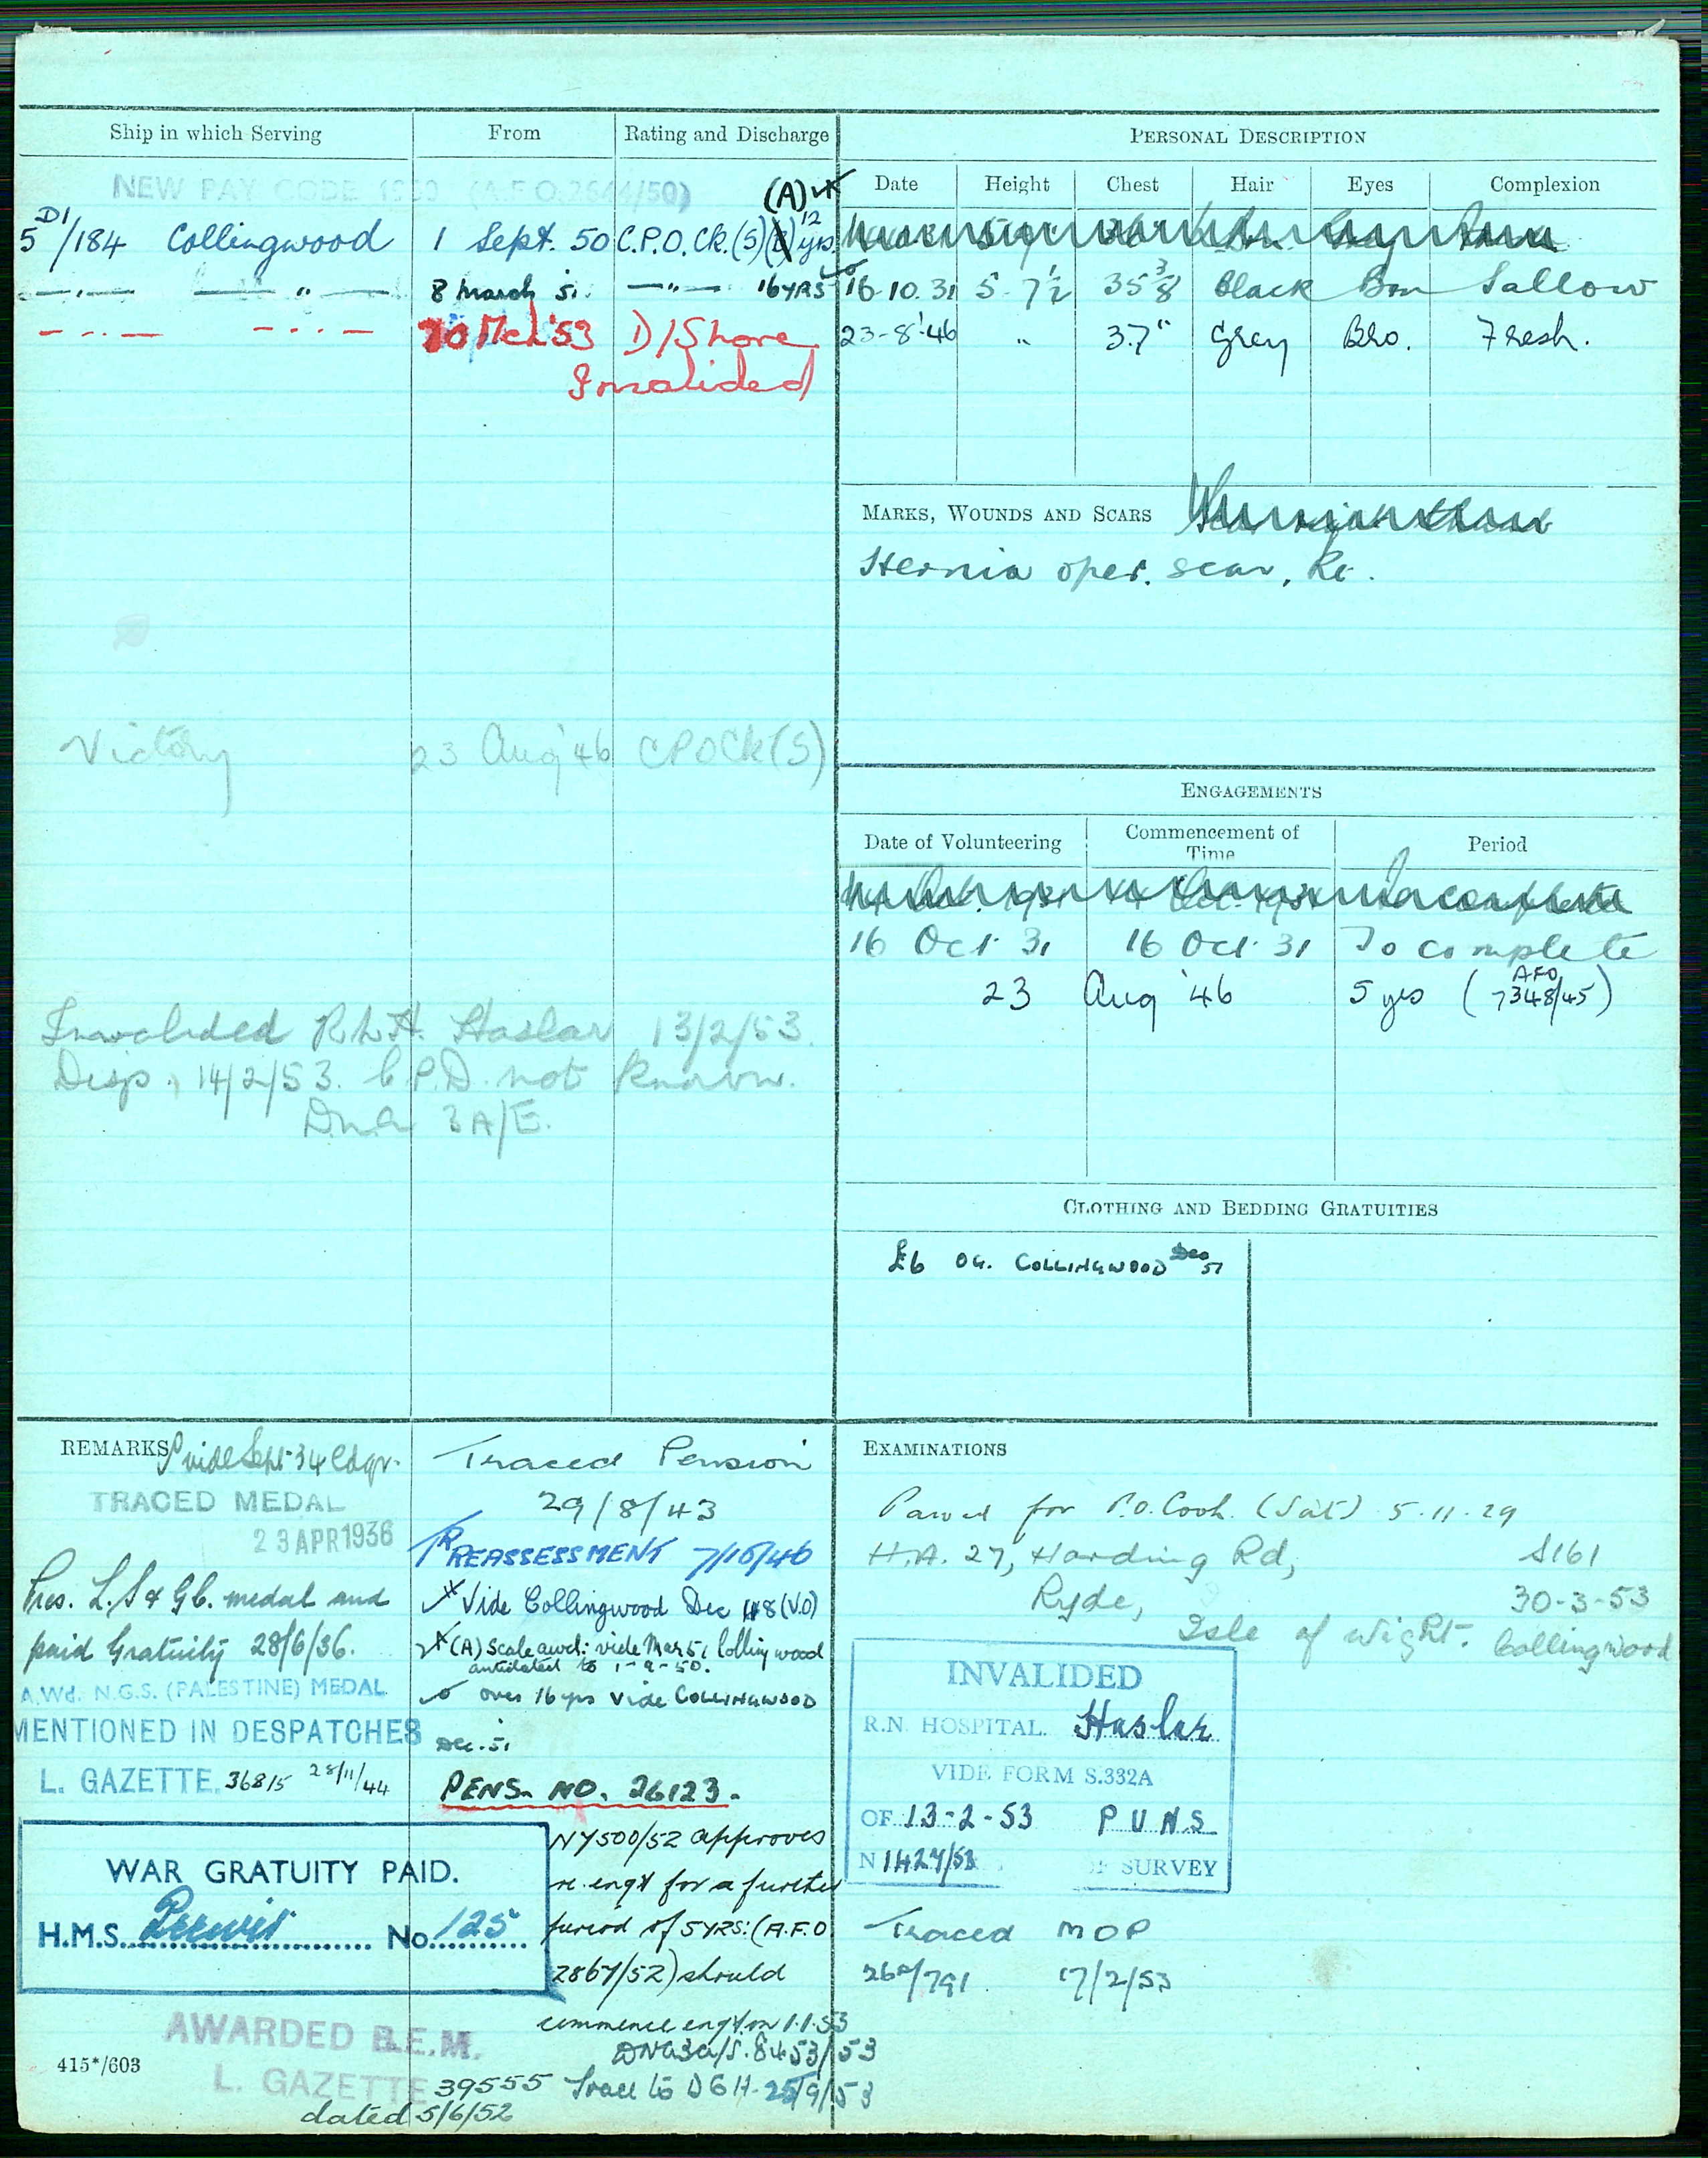 Ship in which Serving From Rating and Discharge
NEW PAY CODE (A.F.O. /50)
(A)
D1
5/184 Collingwood 1 Sept. 50 C.P.O. Ck. (S) 12 yrs.
—"— —"— 8 March 51. —"— 16 YRS
—"— —"— 10 Mch '53 D/Shore
Invalided
Victory 23 Aug '46 CPOCk(S)
Invalided R.N.H. Haslar 13/2/53.
Disp. 14/2/53. C.P.D. not known.
3A/E.
PERSONAL DESCRIPTION
Date Height Chest Hair Eyes Complexion
16.10.31 5 7½ 35⅜ Black Brn Sallow
23-8-'46 " 37" Grey Bro. Fresh.
MARKS, WOUNDS AND SCARS
Hernia oper. scar, Rt.
ENGAGEMENTS
Date of Volunteering Commencement of Time Period
16 Oct. 31 16 Oct. 31 To complete
23 Aug '46 5 yrs (AFO 7348/45)
CLOTHING AND BEDDING GRATUITIES
£6 OG. COLLINGWOOD Dec 51
REMARKS vide Sept. 34 Ldgr.
TRACED MEDAL
23 APR 1936
Pres. L.S & G.C. medal and
paid Gratuity 28/6/36.
A.Wd. N.G.S. (PALESTINE) MEDAL
MENTIONED IN DESPATCHES
L. GAZETTE. 36815 28/11/44
WAR GRATUITY PAID.
H.M.S. No. 125
AWARDED B.E.M.
L. GAZETTE 39555
dated 5/6/52
415*/603
Traced Pension
29/8/43
REASSESSMENT 7/10/46
Vide Collingwood Dec 48 (V.O)
(A) Scale awd: vide Mar 51 Collingwood
antedated to 1-9-50.
over 16 yrs vide COLLINGWOOD
Dec. 51
PENS. NO. 26123.
N4500/52 approves
re engt for a further
period of 5 YRS: (A.F.O
2867/52) should
commence engt on 1.1.53
DNA3a/S.8453/53
Trace to DGH. 25/9/53
EXAMINATIONS
Passed for P.O. Cook. (Sat) 5.11.29
H.A. 27, Harding Rd, S161
Ryde, 30-3-53
Isle of Wight. Collingwood
INVALIDED
R.N. HOSPITAL. Haslar
VIDE FORM S.332A
OF 13-2-53 PUNS
N 1427/53 OF SURVEY
Traced MOP
/791 17/2/53